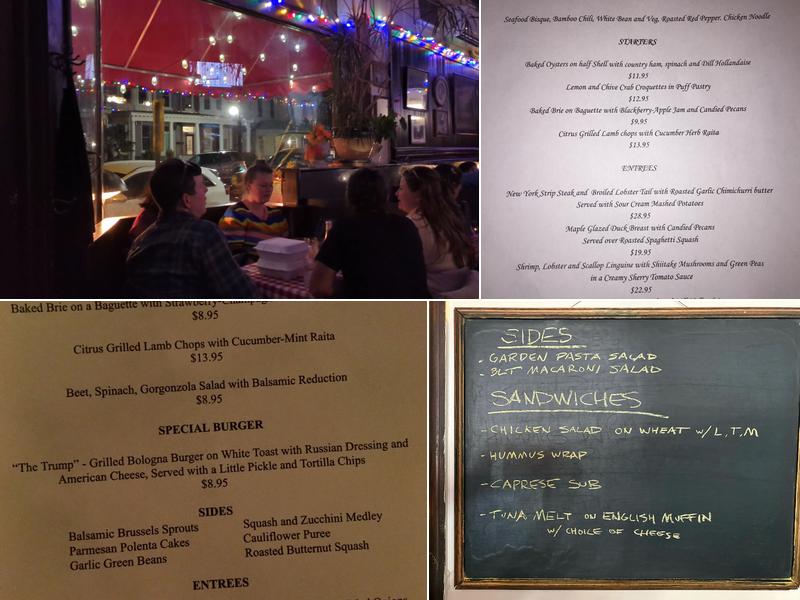 Seafood Bisque, Bamboo Chili, White Bean and Veg, Roasted Red Pepper, Chicken Noodle
STARTERS
Baked Oysters on half Shell with country ham, spinach and Dill Hollandaise
$11.95
Lemon and Chive Crab Croquettes in Puff Pastry
$12.95
Baked Brie on Baguette with Blackberry-Apple Jam and Candied Pecans
$9.95
Citrus Grilled Lamb chops with Cucumber Herb Raita
$13.95
ENTREES
New York Strip Steak and Broiled Lobster Tail with Roasted Garlic Chimichurri butter
Served with Sour Cream Mashed Potatoes
$28.95
Maple Glazed Duck Breast with Candied Pecans
Served over Roasted Spaghetti Squash
$19.95
Shrimp, Lobster and Scallop Linguine with Shiitake Mushrooms and Green Peas
in a Creamy Sherry Tomato Sauce
$22.95
Baked Brie on a Baguette with Strawberry-
$8.95
Citrus Grilled Lamb Chops with Cucumber-Mint Raita
$13.95
Beet, Spinach, Gorgonzola Salad with Balsamic Reduction
$8.95
SPECIAL BURGER
"The Trump" - Grilled Bologna Burger on White Toast with Russian Dressing and
American Cheese, Served with a Little Pickle and Tortilla Chips
$8.95
SIDES
Balsamic Brussels Sprouts
Parmesan Polenta Cakes
Garlic Green Beans
Squash and Zucchini Medley
Cauliflower Puree
Roasted Butternut Squash
ENTREES
SIDES
- GARDEN PASTA SALAD
- BLT MACARONI SALAD
SANDWICHES
- CHICKEN SALAD ON WHEAT W/ L,T,M
- HUMMUS WRAP
- CAPRESE SUB
- TUNA MELT ON ENGLISH MUFFIN
W/ CHOICE OF CHEESE